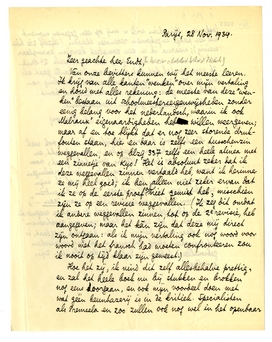 Parijs, 28 Nov. 1934.
Zeer geachte heer Endt,
Van onze dwalingen kunnen wij het meeste leeren.
Ik krijg van alle kanten "wenken" over mijn vertaling
en houd met alles rekening; de meeste van deze "wen-
ken" bestaan uit schoolmeestereigenwijsheden zonder
eenig belang voor het nederlandsch, waarin ik ook
eigenaardigheden heb willen weergeven;
maar af en toe blijkt dat er nog zeer storende druk-
fouten staan, hier en daar is zelfs een
weggevallen, en op blz. een heele alinea met
een zinnetje van Kyo! Het is absoluut zeker dat ik
deze weggevallen zinnen vertaald heb, want ik herinner
ze mij heel goed; ik ben alleen niet zeker ervan dat
ik ze op de eerste proef heb gemist, misschien
zijn ze op een revisie weggevallen! (Ik zeg dit omdat
ik andere weggevallen zinnen, tot op de 2e revisie, heb
aangegeven; maar het kan zijn dat deze mij direct
zijn ontgaan: als ik mijn vertaling ook nog woord voor
woord met het fransch had moeten confronteeren zou
ik nooit op tijd klaar zijn geweest.)
Hoe het zij, ik vind dit zelf allesbehalve prettig,
en zal het heele boek nu bij stukken en brokken
nog eens doorgaan, en ook mijn voordeel doen met
wat zijn keurmeesterij is in de kritiek. Specialisten
als Premsela en zoo zullen ook nog wel in het openbaar